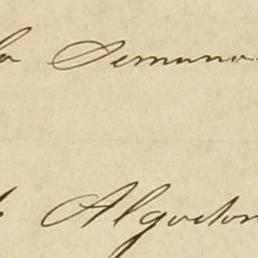 la Semana
Algodon